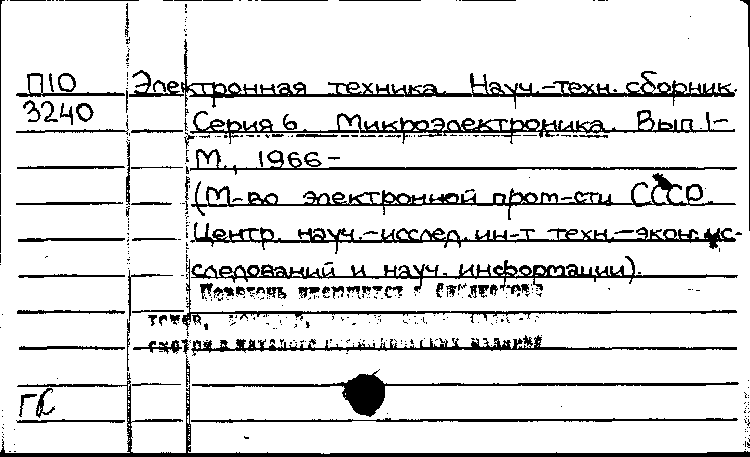 П10 Электронная техника. Науч.-техн. сборник.
3240 Серия 6 Микроэлектроника. Вып. 1-
М., 1966-
(М-во электронной пром-сти СССР.
Центр. науч.-исслед. ин-т техн.-экон. ис-
следований и науч. информации).
имеющихся в библиотеке
томов,
смотри в каталоге периодических изданий